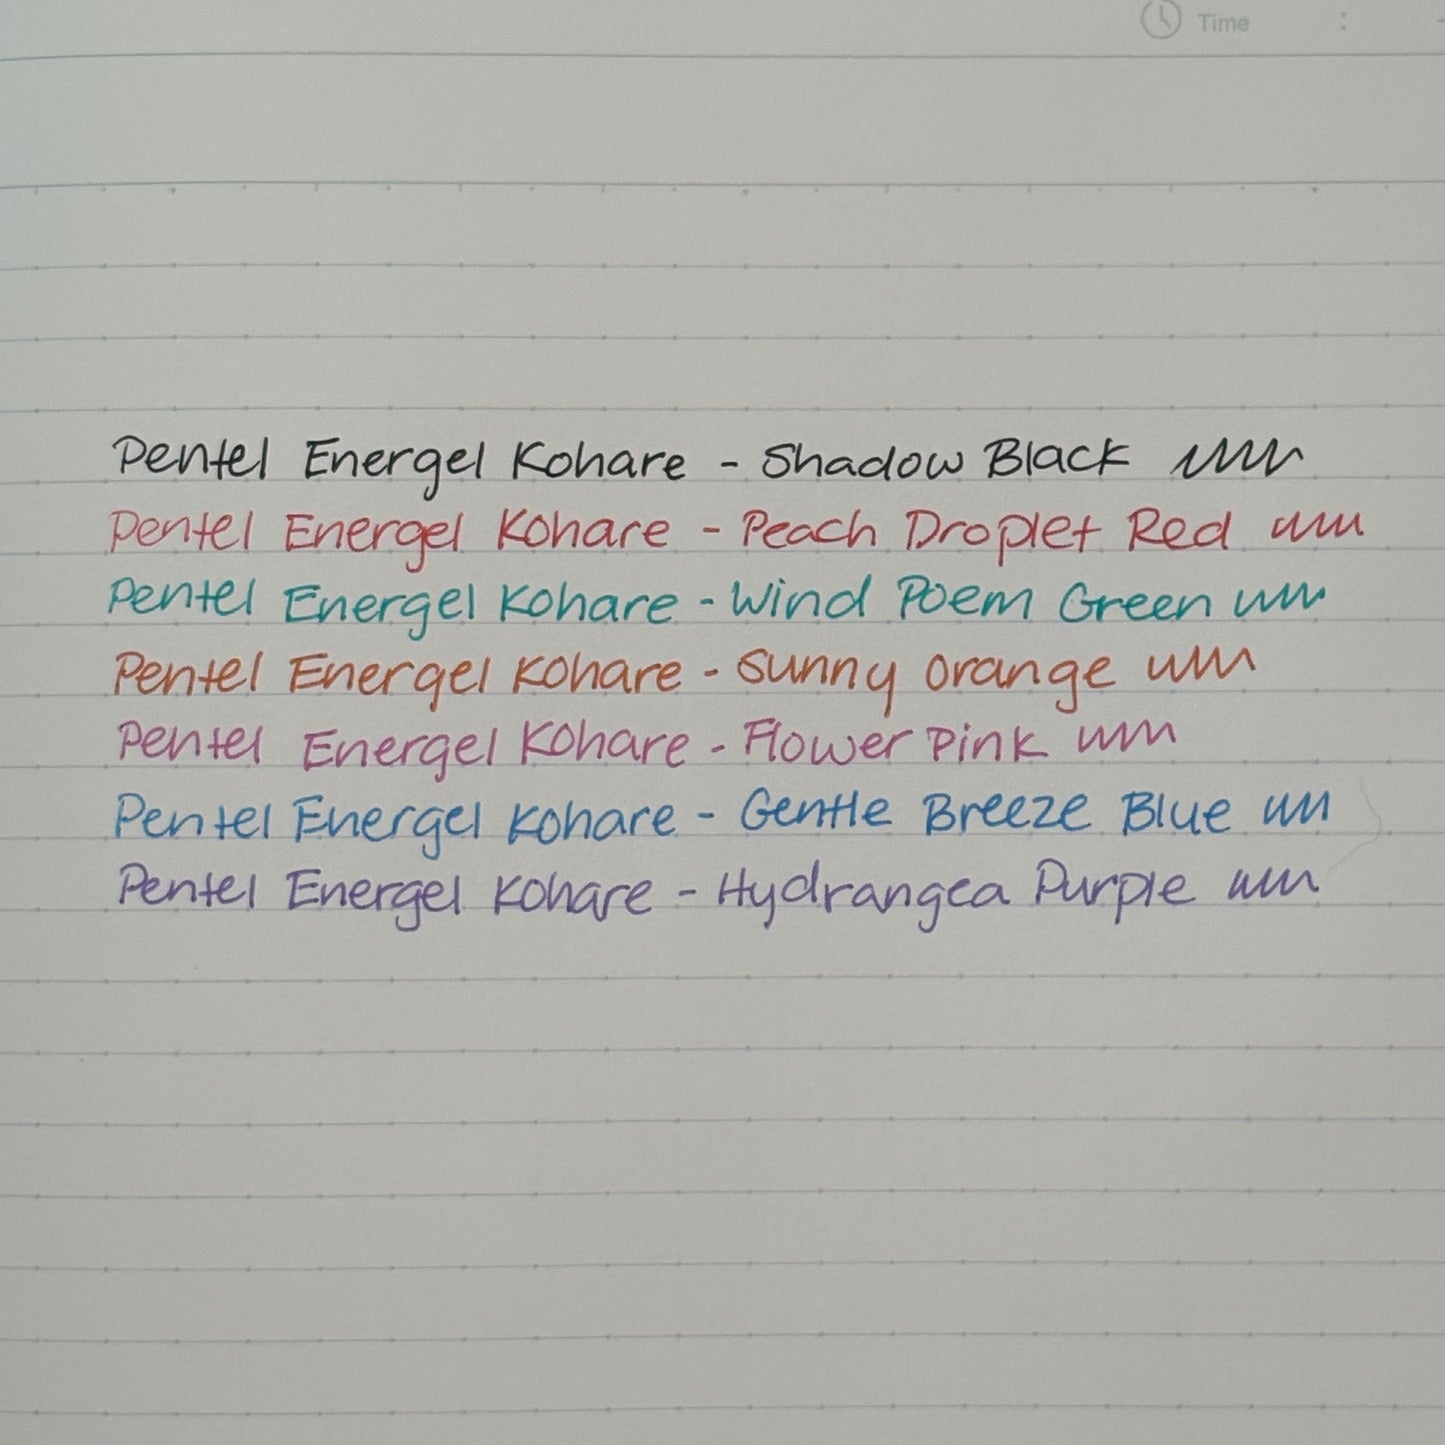 Time :
Pentel Energel Kohare - Shadow Black
Pentel Energel Kohare - Peach Droplet Red
Pentel Energel Kohare - Wind Poem Green
Pentel Energel Kohare - Sunny Orange
Pentel Energel Kohare - Flower Pink
Pentel Energel Kohare - Gentle Breeze Blue
Pentel Energel Kohare - Hydrangea Purple